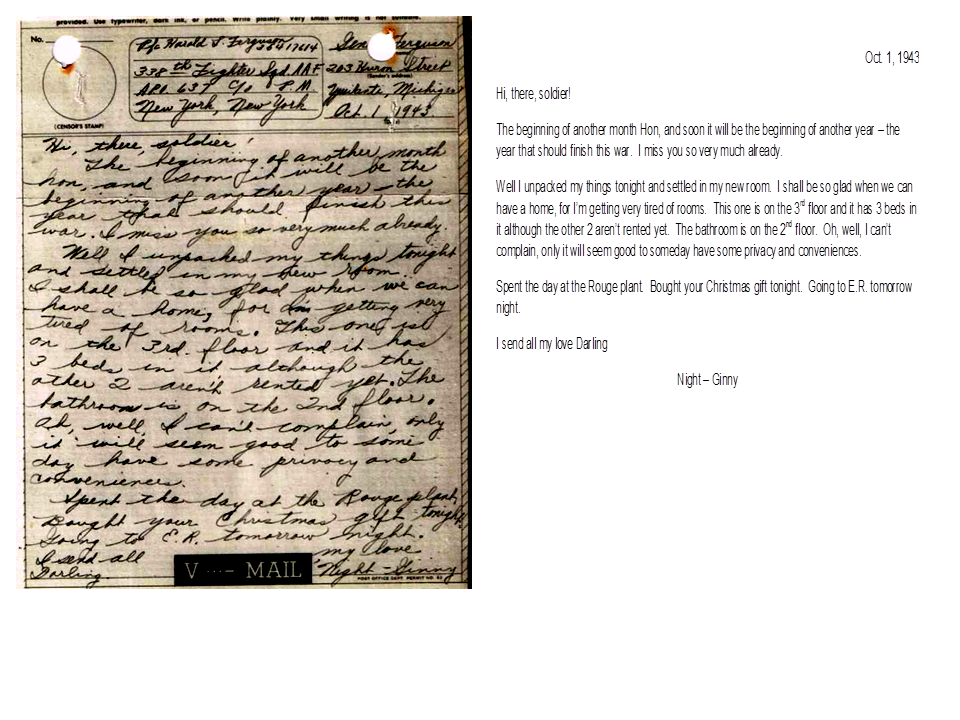 provided. Use typewriter, dark ink, or pencil. Write plainly. Very small writing is not suitable.
No.
(CENSOR'S STAMP)
Pfc Harold J. Ferguson
338th Fighter Sqd. AAF
APO 637 C/o P.M.
New York, New York
Ferguson
203 Huron Street
(Sender's address)
Oct. 1 1943
Hi, there, soldier!
The beginning of another month
hon, and soon it will be the
beginning of another year – the
year that should finish this
war. I miss you so very much already.
Well I unpacked my things tonight
and settled in my new room.
I shall be so glad when we can
have a home, for I'm getting very
tired of rooms. This one is
on the 3rd. floor and it has
3 beds in it although the
other 2 aren't rented yet. The
bathroom is on the 2nd floor.
Oh, well I can't complain, only
it will seem good to some
day have some privacy and
conveniences.
Spent the day at the Rouge plant.
Bought your Christmas gift tonight.
Going to E.R. tomorrow night.
I send all my love
Darling Night – Ginny
V ···– MAIL
POST OFFICE DEPT. PERMIT NO.
Oct. 1, 1943
Hi, there, soldier!
The beginning of another month Hon, and soon it will be the beginning of another year – the
year that should finish this war. I miss you so very much already.
Well I unpacked my things tonight and settled in my new room. I shall be so glad when we can
have a home, for I'm getting very tired of rooms. This one is on the 3rd floor and it has 3 beds in
it although the other 2 aren't rented yet. The bathroom is on the 2nd floor. Oh, well, I can't
complain, only it will seem good to someday have some privacy and conveniences.
Spent the day at the Rouge plant. Bought your Christmas gift tonight. Going to E.R. tomorrow
night.
I send all my love Darling
Night – Ginny